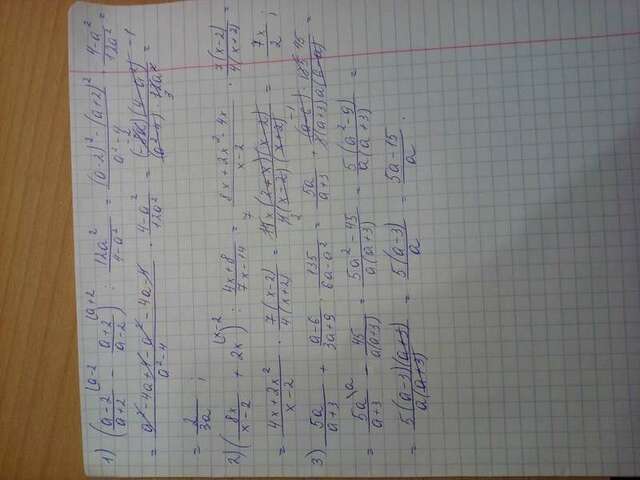 1) ((a-2)/(a+2) ^(a-2 - (a+2)/(a-2) ^(a+2) : 12a²/(4-a²) = ((a-2)² - (a+2)²)/(a²-4) · (4-a²)/12a² =
= (a²-4a+4-a²-4a-4)/(a²-4) · (4-a²)/12a² = (-8a)(4-a²)/((a²-4) 12a²) =
= 2/3a ;
2) (8x/(x-2) + 2x ^(x-2) : (4x+8)/(7x-14) = (8x+2x²-4x)/(x-2) · 7(x-2)/4(x+2) =
= (4x+2x²)/(x-2) · 7(x-2)/4(x+2) = 2x(2+x)7(x-2)/4(x-2)(x+2) = 7x/2 ;
3) 5a/(a+3) + (a-6)/(3a+9) · 135/(6a-a²) = 5a/(a+3) + (a-6)·135/3(a+3)a(6-a) =
= 5a/(a+3) ^a - 45/a(a+3) = (5a²-45)/a(a+3) = 5(a²-9)/a(a+3) =
= 5(a-3)(a+3)/a(a+3) = 5(a-3)/a = (5a-15)/a .